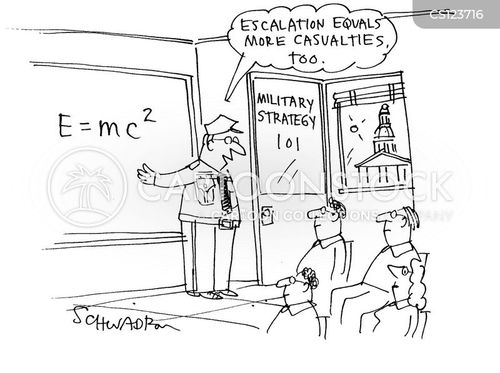 CS123716
ESCALATION EQUALS
MORE CASUALTIES,
TOO.
E = mc²
MILITARY
STRATEGY
101
CARTOONSTOCK
SCHWADRON